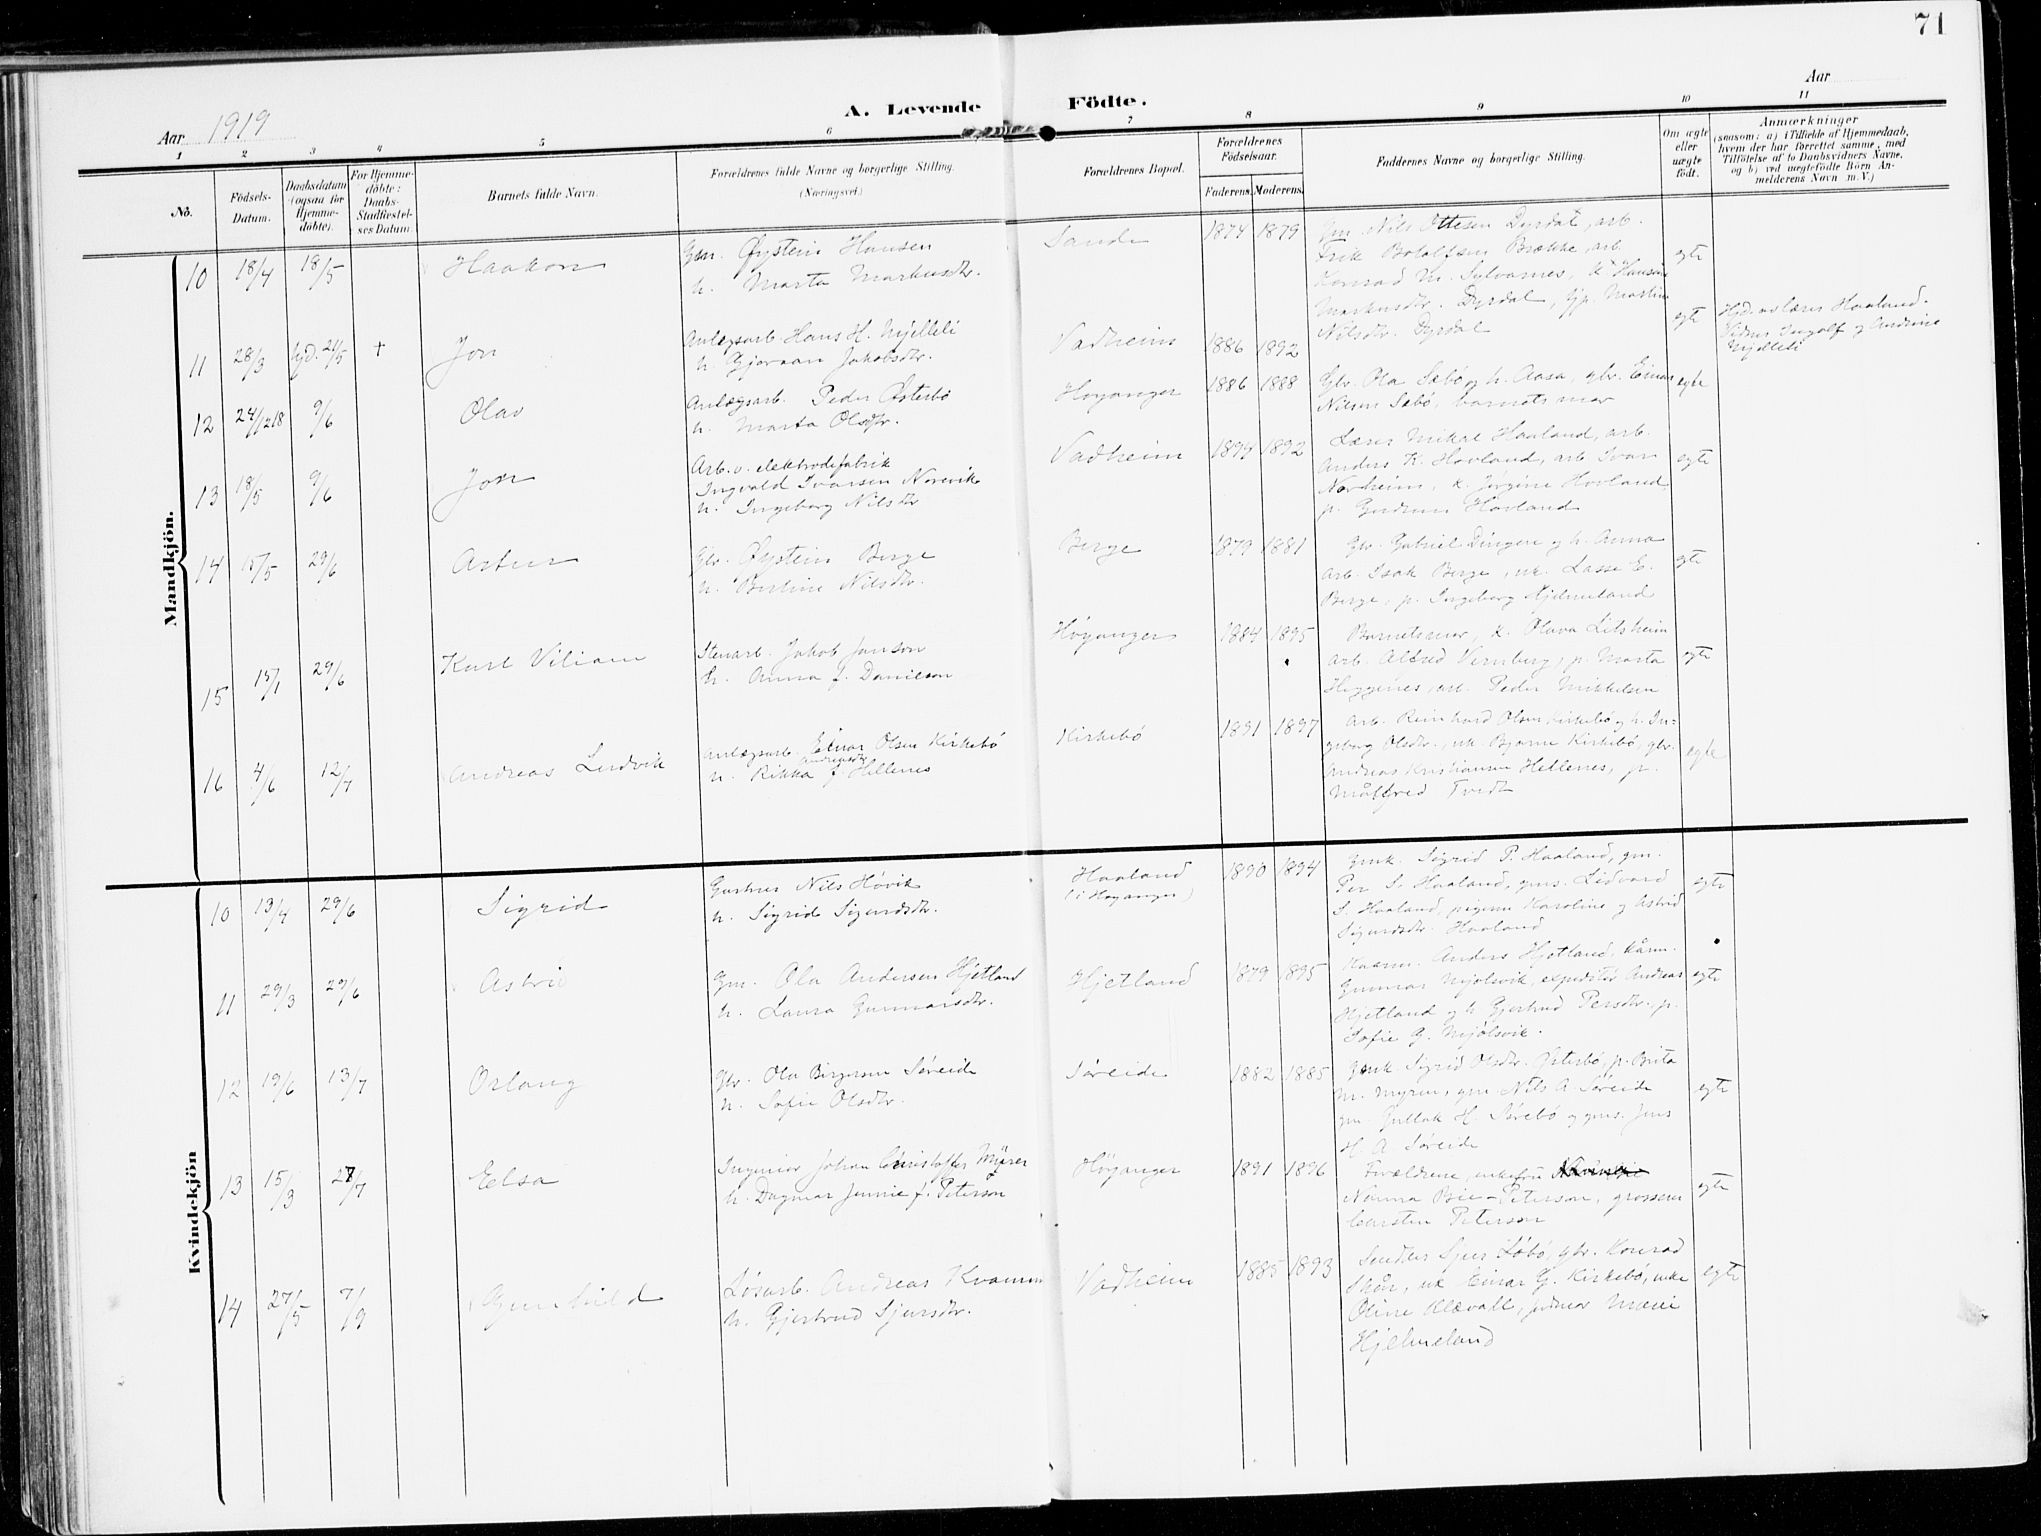 71
Aar 1919
A. Levende Födte.
Aar
1 2 3 4 5 6 7 8 9 10 11
No.
Födsels-Datum.
Daabsdatum (ogsaa for Hjemme-döbte).
For Hjemme-döbte: Daabs-Stadfæstel-ses Datum.
Barnets fulde Navn.
Forældrenes fulde Navne og borgerlige Stilling.
(Næringsvei.)
Forældrenes Bopæl.
Forældrenes Födselsaar.
Faderens. Moderens.
Faddernes Navne og borgerlige Stilling.
Om ægte eller uægte födt.
Anmærkninger
(saasom: a) i Tilfælde af Hjemmedaab,
hvem der har forrettet samme, med
Tilföielse af to Daabsvidners Navne,
og b) ved uægtefödte Börn An-
melderens Navn m. V.)
Mandkjön.
10 18/4 18/5 Haakon
Gm. Øystein Hansen
h. Marta Markusdtr.
Sande 1874 1879
Gm. Nils Ottesen Dyrdal, arb.
Erik Botolfsen Brække, arb.
Konrad M. Sylvarnes, k. Hansine
Markusdtr. Dyrdal, pp. Martin
Nilsdtr. Dyrdal
egte
11 28/3 hjd. 21/5 + Jon
Anlegsarb. Hans H. Mjelleli
h. Gjøraan Jakobsdtr.
Vadheim 1886 1892
egte
Hjd. av lærer Haaland.
Vidner Ingolf og Andrine
Mjelleli
12 24/12 18 9/6 Olav
Anlægsarb. Peder Østerbø
h. Marta Olsdtr.
Høyanger 1886 1888
Gbr. Ola Sæbø og h. Aasa, gbr. Einar
Nilsen Sæbø, barnets mor
egte
13 18/5 9/6 Jon
Arb. v. elektrodefabrik
Ingvald Ivarsen Norevik
h. Ingeborg Nilsdtr
Vadheim 1894 1892
Lærer Mikal Haaland, arb.
Anders K. Hovland, arb. Ivar
Norheim, k. Jørgine Hovland,
p. Gudrun Hovland
egte
14 15/5 29/6 Artur
Gbr. Øystein Berge
h. Bertine Nilsdtr.
Berge 1879 1881
Gbr. Gabriel Dingen og h. Anna
arb. Isak Berge, uk. Lasse E.
Berge, p. Ingeborg Hjelmeland
egte
15 15/1 29/6 Karl Viliam
Stenarb. Jakob Janson
h. Anna f. Danielson
Høyanger 1884 1895
Barnets mor, k. Olava Litsheim
arb. Alfred Vernberg, p. Marta
Heggenes, arb. Peder Mikkelsen
egte
16 4/6 12/7 Andreas Ludvik
Anlægsarb. Einar Olsen Kirkebø
Andreasdtr
h. Rikka f. Hellenes
Kirkebø 1891 1897
Arb. Reinhard Olsen Kirkebø og h. In-
geborg Olsdtr., uk. Bjarne Kirkebø, gbr.
Andreas Kristiansen Hellenes, p.
Målfred Tvedt
egte
Kvindekjön
10 13/4 29/6 Sigrid
Gartner Nils Høvik
h. Sigrid Sigurdsdtr.
Haaland
(i Høyanger)
1890 1894
Gmk. Sigrid P. Haaland, gm.
Per S. Haaland, gms. Lidvard
S. Haaland, pigerne Karoline og Astrid
Sigurdsdtr. Haaland
egte
11 29/3 29/6 Astrid
Gm. Ola Andersen Hjetland
h. Laura Gunnarsdtr.
Hjetland 1879 1895
Kaarm. Anders Hjetland, kårm.
Gunnar Mjølsvik, expeditør Andreas
Hjetland og h. Gjertrud Persdtr., p.
Sofie G. Mjølsvik.
egte
12 19/6 13/7 Orlaug
Gbr. Ola Birgersen Søreide
h. Sofie Olsdtr.
Søreide 1882 1885
Gmk. Sigrid Olsdtr. Østerbø, p. Brita
M. Myren, gm Nils A. Søreide
gm. Gullak H. Sørebø og gms. Jens
H. A. Søreide
egte
13 15/3 27/7 Elsa
Ingeniør Johan Christoffer Myrer
h. Dagmar Jennie f. Peterson
Høyanger 1891 1896
Forældrene, enkefru
Nanna Bie-Peterson, grosserer
Carsten Peterson
egte
14 27/5 7/9 Gunhild
Løsarb. Andreas Kvamm
h. Gjertrud Sjursdtr.
Vadheim 1885 1893
Snedker Sjur Løbø, gbr. Konrad
Skår, uk Einar G. Kirkebø, enke
Oline Klævall, jordmor Marie
Hjelmeland
egte